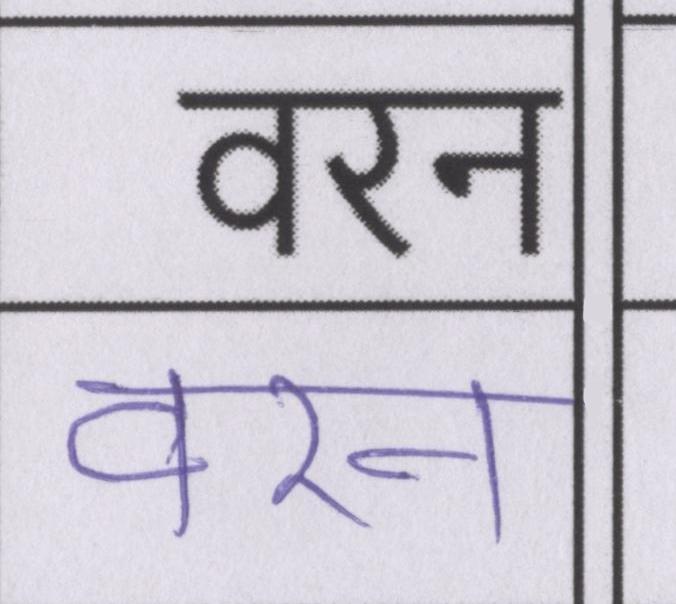 वरन
वरन